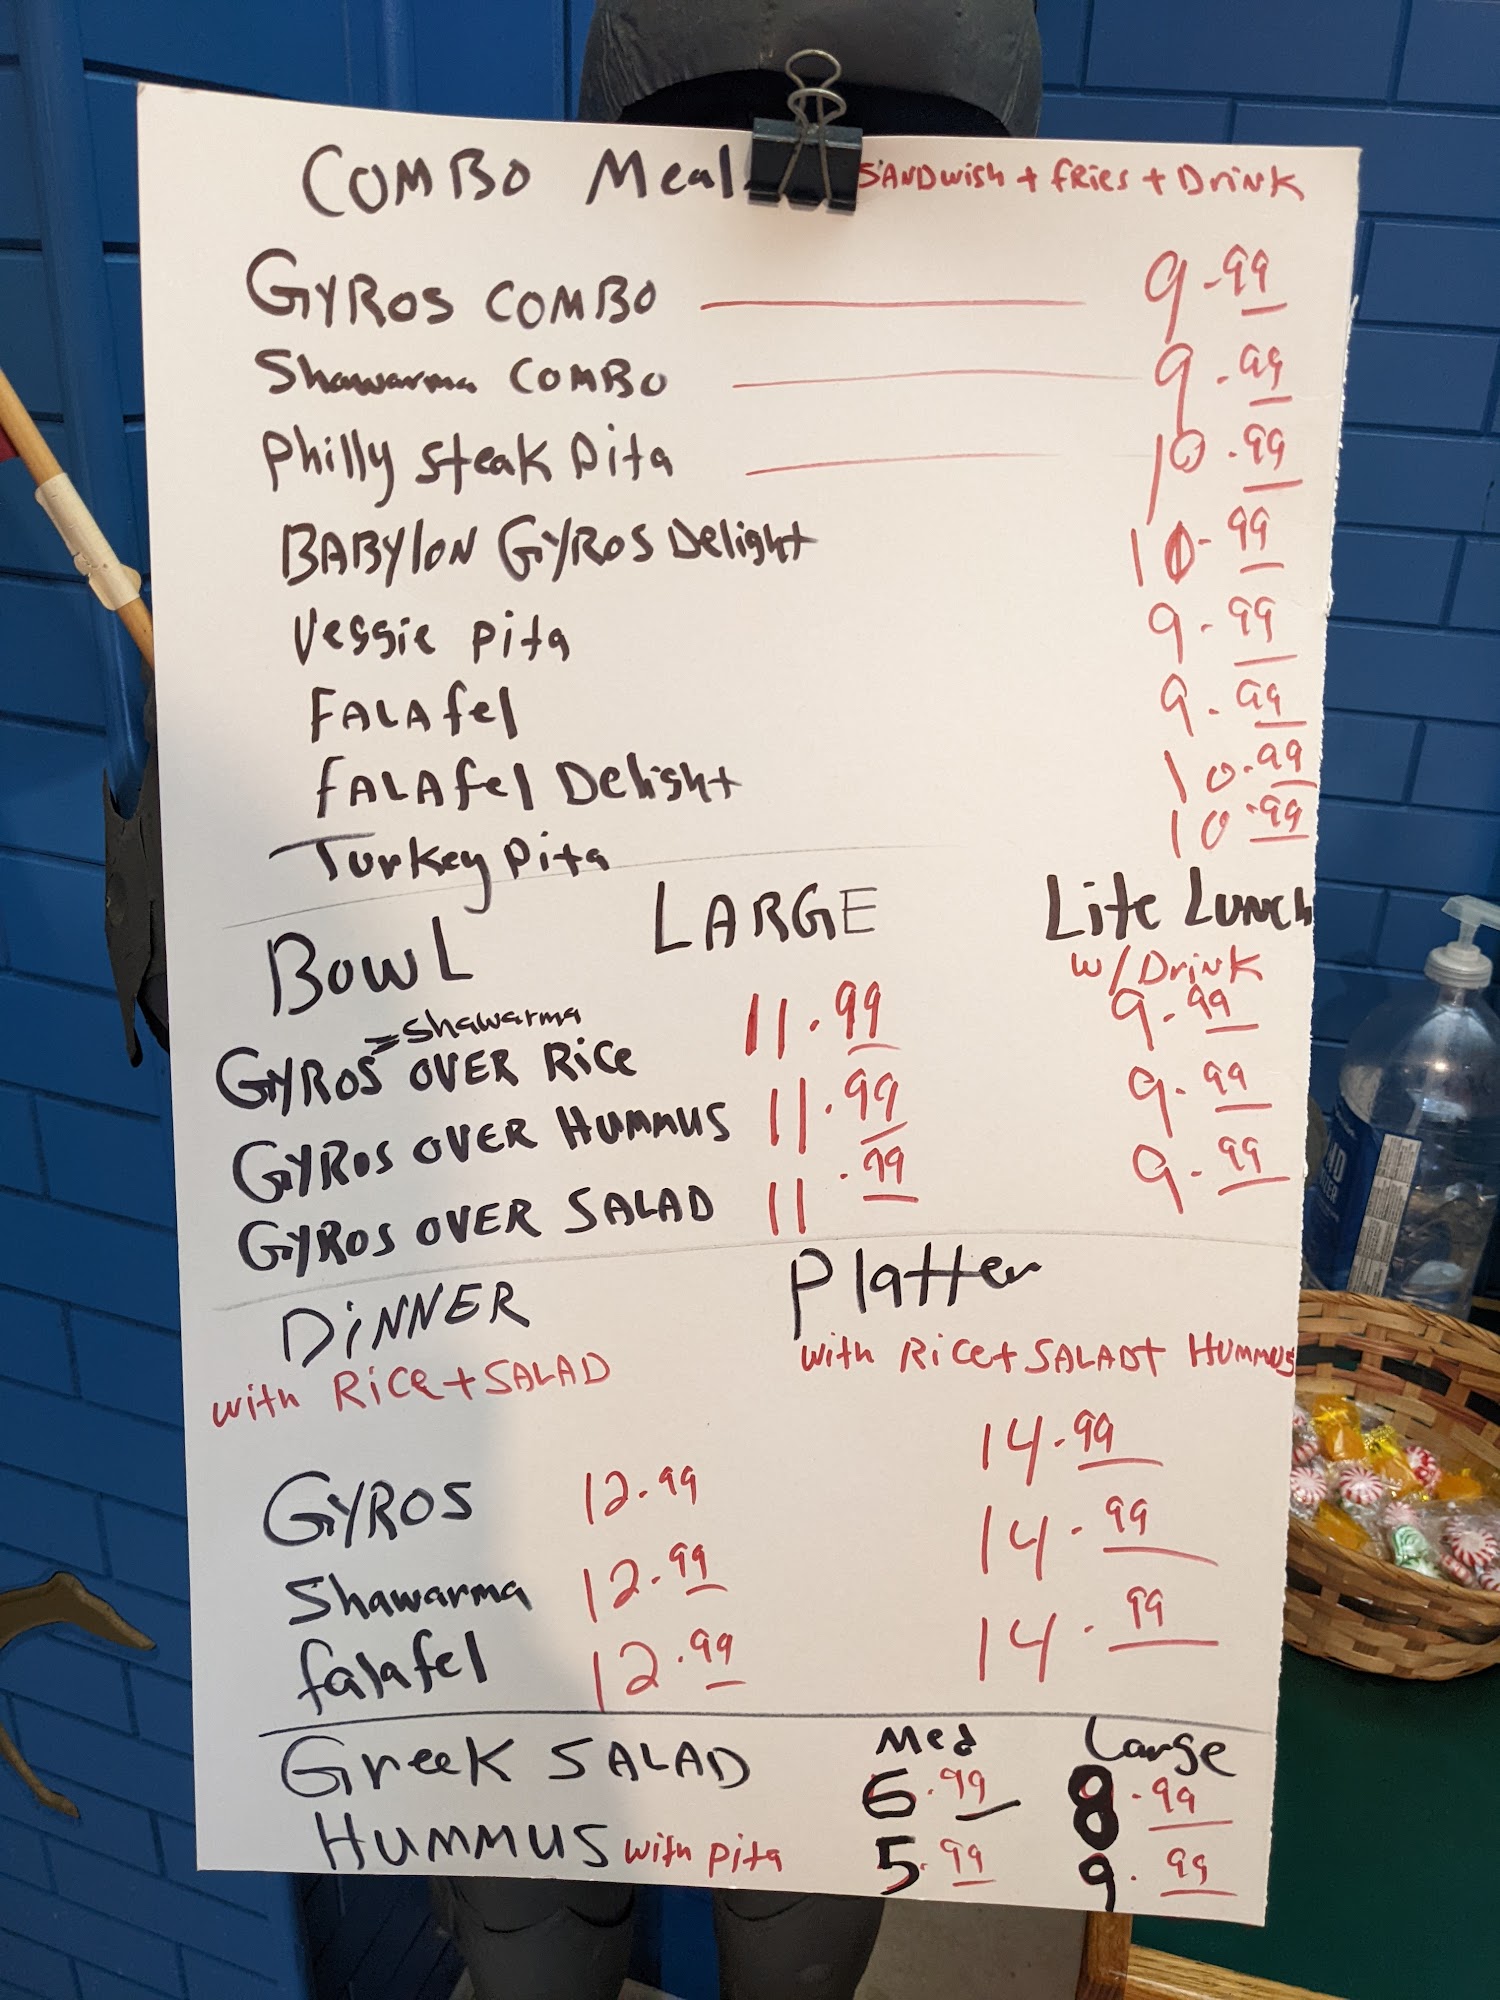 COMBO Meal SANDWish + fRies + Drink
GYROS COMBO 9.99
Shawarma COMBO 9.99
Philly Steak Pita 10.99
BABYlON GYROS Delight 10.99
Veggie pita 9.99
FALAfel 9.99
fALAfel Delight 10.99
Turkey pita 10.99
BOWL LARGE Lite LUNCh
w/Drink
Shawarma
GYROS OVER Rice 11.99 9.99
GYROS OVER HUMMUS 11.99 9.99
GYROS OVER SALAD 11.99 9.99
DiNNER Platter
with Rice + SALAD with Rice + SALAD + HUMMUS
GYROS 12.99 14.99
Shawarma 12.99 14.99
falafel 12.99 14.99
Med Large
Greek SALAD 6.99 8.99
HUMMUS with pita 5.99 9.99